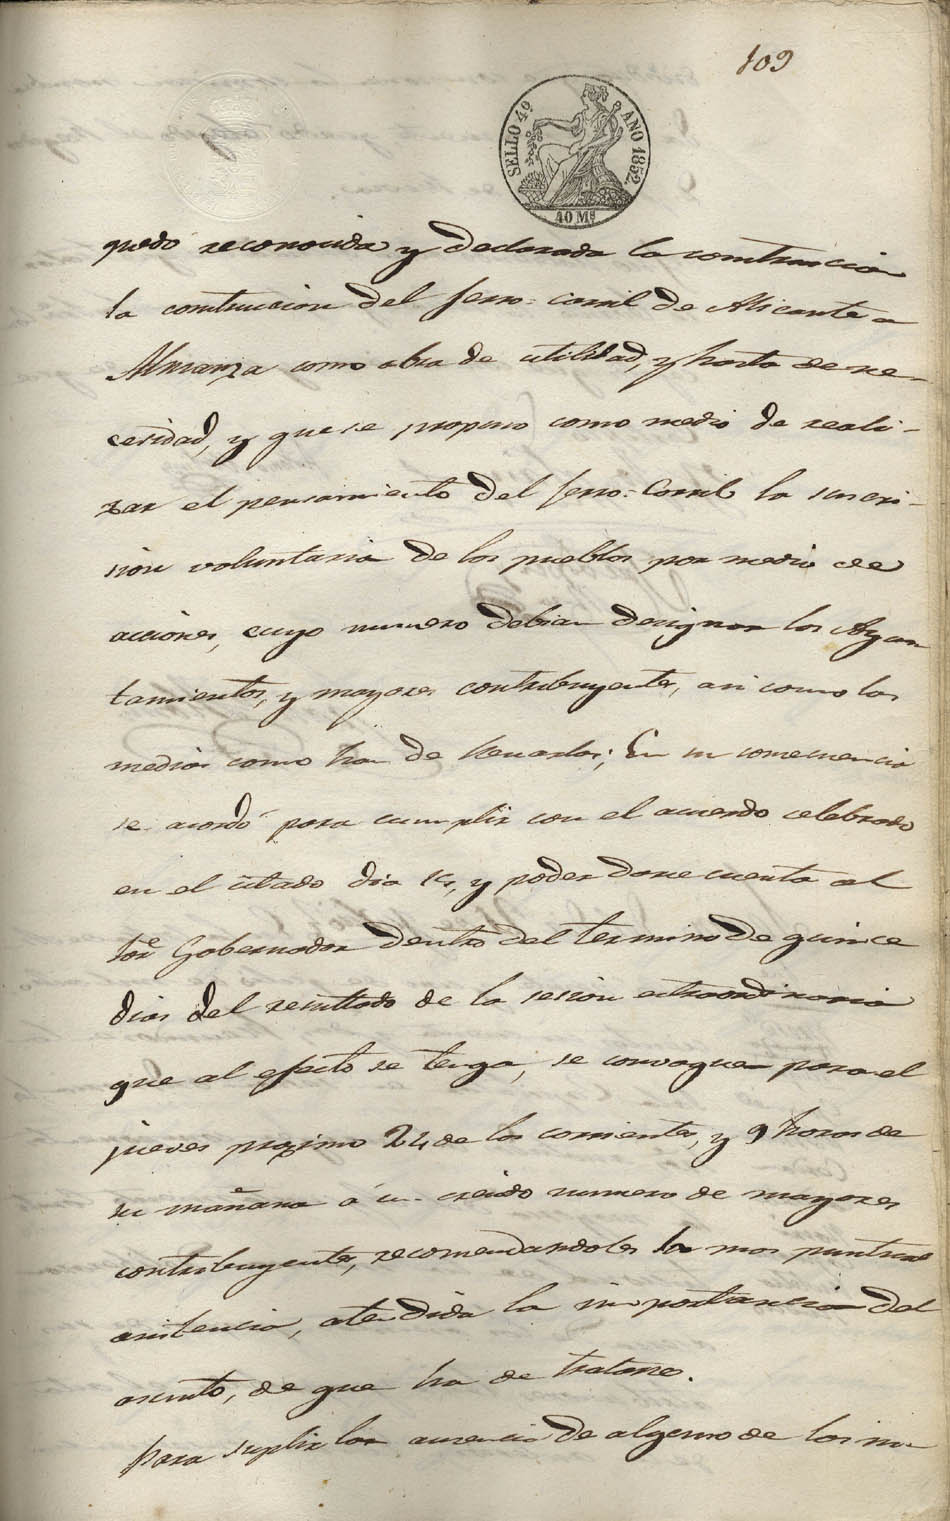 109
SELLO 4º AÑO 1852.
40 Ms
quedó reconocida y declarada la contruccion
la contrucion del ferro=carril de Alicante a
Almansa como obra de utilidad, y hasta de ne-
cesidad, y que se propuso como medio de reali-
zar el pensamiento del ferro=Carril la suscri-
sion voluntaria de los pueblos por medio de
acciones, cuyo numero debian designar los Ayun
tamientos, y mayores contribuyentes, asi como los
medios como han de llenarlos; En su consecuencia
se acordó para cumplir con el acuerdo celebrado
en el citado dia y poder darse cuenta al
Sor Gobernador dentro del termino de quince
dias del resultado de la sesion extraordinaria
que al efecto se tenga, se convoquen para el
jueves proximo 24 de los corrientes, y 9 horas de
su mañana á un crecido numero de mayores
contribuyentes, recomendandoles la mas puntual
asistencia, atendida la importancia del
asunto, de que ha de tratarse.
Para suplir las ausencias de alguno de los in-